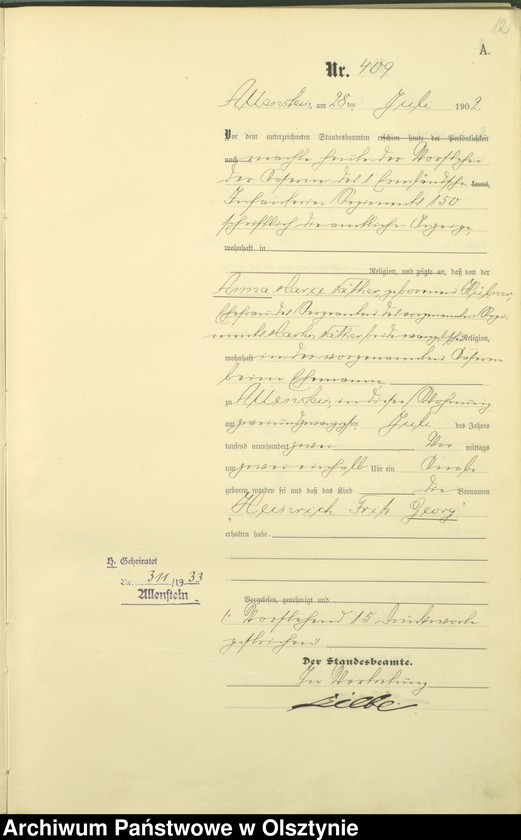 12
A.
Nr. 409
Allenstein, am 28 ten Juli 1902.
Vor dem unterzeichneten Standesbeamten erschien heute der Persönlichkeit
nach machte heute der Vorsteher
der Kaserne des 1 Ermländische kannt,
Infanterie Regiments 150
schriftlich die amtliche Anzeige,
wohnhaft in
Religion, und zeigte an, daß von der
Anna Marie geborenen
Ehefrau des Sergeanten des vorgenannten Regi-
ments beide evangelischer Religion,
wohnhaft in der vorgenannten Kaserne
beim Ehemanne
zu Allenstein, in dieser Wohnung
am zweiundzwanzigsten Juli des Jahres
tausend neunhundert zwei Vor mittags
um zwei einhalb Uhr ein Knabe
geboren worden sei und daß das Kind die Vornamen
Heinrich Fritz Georg
erhalten habe.
H. Geheiratet
Nr. 311/1933
Allenstein
Vorgelesen, genehmigt und
Vorstehend 15 Druckworte
gestrichen
Der Standesbeamte.
In Vertretung
Archiwum Państwowe w Olsztynie